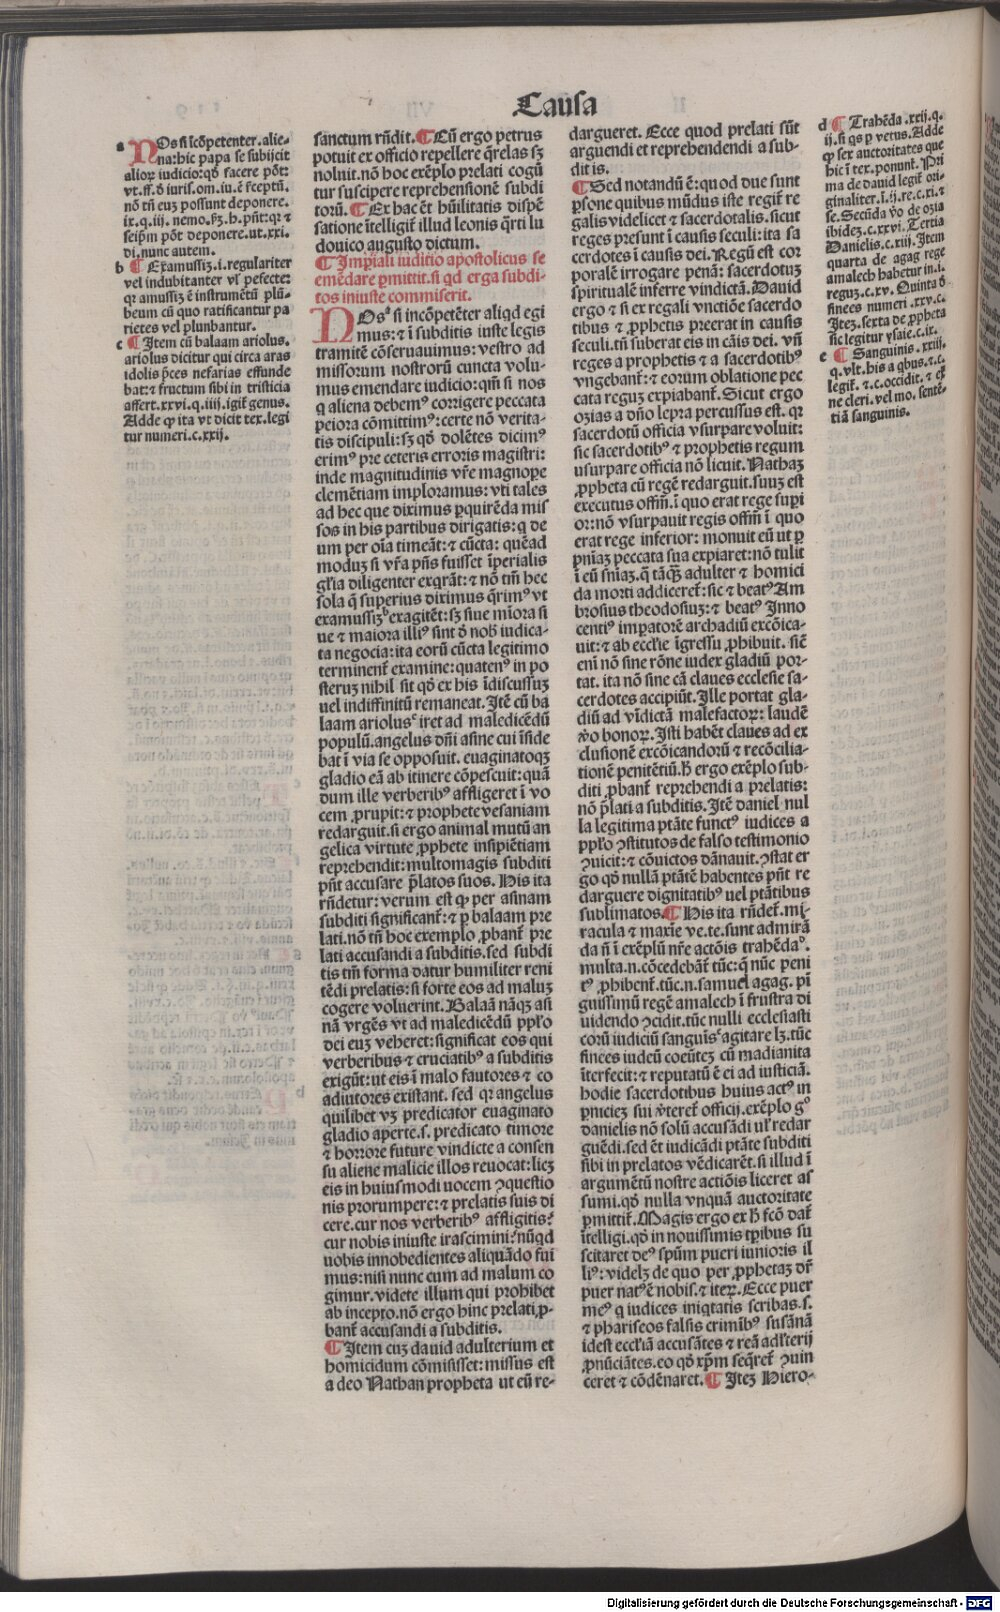 Causa
a Nos si īcōpetenter. alie-
na: hic papa se subijcit
alioꝝ iudicio: qd̄ facere pōt:
vt. ff. ō iuris. om. iu. ē rceptū.
nō tñ euȝ possunt deponere.
ix. q. iij. nemo. ſȝ. h. pñt: qr ⁊
seip̄m pōt deponere. ut. xxi.
di. nunc autem.
b ¶ Examussiȝ. i. regulariter
vel indubitanter vl̓ pefecte:
qr amussiȝ ē instrumētū plū-
beum cū quo ratificantur pa
rietes vel plunbantur.
c ¶ Item cū balaam ariolus.
ariolus dicitur qui circa aras
idolis p̄ces nefarias effunde
bat: ⁊ fructum sibi in tristicia
affert. xxvi. q. iiij. igit̄ genus.
Adde ꝙ ita vt dicit tex. legi
tur numeri. c. xxij.
sanctum rñdit. ¶ Cū ergo petrus
potuit ex officio repellere q̄relas sȝ
noluit. nō hoc exēplo prelati cogū
tur suscipere reprehensionē subdi
torū. ¶ Ex hac ēt hūilitatis dispē
satione ītelligit̄ illud leonis q̄rti lu
douico augusto dictum.
¶ Imp̄iali iuditio apostolicus se
emēdare p̱mittit. si qd erga subdi-
tos iniuste commiserit.
NOsᵃ si incōpetēter aliqd egi
mus: ⁊ ī subditis iuste legis
tramitē cōseruauimus: vestro ad
missorum nostrorū cuncta volu-
mus emendare iudicio: qm̄ si nos
q aliena debemꝰ corrigere peccata
peiora cōmittimꝰ: certe nō verita-
tis discipuli: sȝ qd̄ dolētes dicimꝰ
erimꝰ pre ceteris erroris magistri:
inde magnitudinis vr̄e magnope
clemētiam imploramus: vti tales
ad hec que diximus p̱quirēda mis
sos in his partibus dirigatis: q de
um per oīa timeāt: ⁊ cūcta: quēad
moduȝ si vr̄a p̄ns fuisset īperialis
gr̄ia diligenter exqrāt: ⁊ nō tm̄ hec
sola q̄ superius diximus q̄rimꝰ vt
examussiȝᵇ exagitēt: sȝ siue mīora si
ue ⁊ maiora illiꝰ sint ō nob̄ iudica-
ta negocia: ita eorū cūcta legitimo
terminent̄ examine: quatenꝰ in po
steruȝ nihil sit qd̄ ex his īdiscussuȝ
uel indiffinitū remaneat. Itē cū ba
laam ariolusᶜ iret ad maledicēdū
populū. angelus dñi asine cui īside
bat ī via se opposuit. euaginatoqȝ
gladio eā ab itinere cōpescuit: quā
dum ille verberibꝰ affligeret ī vo
cem ꝓrupit: ⁊ prophete vesaniam
redarguit. si ergo animal mutū an
gelica virtute ꝓphete insipiētiam
reprehendit: multomagis subditi
pñt accusare p̄latos suos. His ita
rñdetur: verum est ꝙ per asinam
subditi significant̄: ⁊ p̱ balaam pre
lati. nō tñ hoc exemplo ꝓbant̄ pre
lati accusandi a subditis. sed subdi
tis tm̄ forma datur humiliter reni
tēdi prelatis: si forte eos ad maluȝ
cogere voluerint. Balaā nāqȝ asi
nā vrgēs vt ad maledicēdū pp̄lo
dei euȝ veheret: significat eos qui
verberibus ⁊ cruciatibꝰ a subditis
exigūt: ut eis ī malo fautores ⁊ co
adiutores existant. sed qr angelus
quilibet vȝ predicator euaginato
gladio aperte. s. predicato timore
⁊ horrore future vindicte a consen
su aliene malicie illos reuocat: liceȝ
eis in huiusmodi uocem ꝯquestio
nis prorumpere: ⁊ prelatis suis di
cere. cur nos verberibꝰ affligitis?
cur nobis iniuste irascimini: nūqd
uobis innobedientes aliquādo fui
mus: nisi nunc cum ad malum co
gimur. videte illum qui prohibet
ab incepto. nō ergo hinc prelati ꝓ-
bant̄ accusandi a subditis.
¶ Item cuȝ dauid adulterium et
homicidum cōmisisset: missus est
a deo Nathan propheta ut eū re-
dargueret. Ecce quod prelati sūt
arguendi et reprehendendi a sub-
dit is.
¶ Sed notandū ē: quod due sunt
p̱sone quibus mūdus iste regit̄ re
galis videlicet ⁊ sacerdotalis. sicut
reges presunt ī causis seculi: ita sa
cerdotes ī causis dei. Regū est cor
poralē irrogare penā: sacerdotuȝ
spiritualē inferre vindictā. Dauid
ergo ⁊ si ex regali vnctiōe sacerdo
tibus ⁊ ꝓphetis preerat in causis
seculi. tñ suberat eis in cāis dei. vñ
reges a prophetis ⁊ a sacerdotibꝰ
vngebant̄: ⁊ eorum oblatione pec
cata reguȝ expiabant̄. Sicut ergo
oȝias a dño lepra percussus est. qr
sacerdotū officia vsurpare voluit:
sic sacerdotibꝰ ⁊ prophetis regum
usurpare officia nō licuit. Nathaȝ
ꝓpheta cū regē redarguit. suuȝ est
executus offm̄. ī quo erat rege sup̱i
or: nō vsurpauit regis offm̄ ī quo
erat rege inferior: monuit eū ut p̱
pnīaȝ peccata sua expiaret: nō tulit
ī eū sniāȝ. q̄ tāqȝ adulter ⁊ homici
da morti addiceret̄: sic ⁊ beatꝰ Am
brosius theodosiuȝ: ⁊ beatꝰ Inno
centiꝰ imp̱atorē archadiū excōica-
uit: ⁊ ab eccl̄ie īgressu ꝓhibuit. sicē
eni nō sine rōne iudex gladiū por-
tat. ita nō sine cā claues ecclesie sa-
cerdotes accipiūt. Ille portat gla-
diū ad vīdictā malefactoꝝ: laudē
v̄o bonoꝝ. Isti habēt claues ad ex
clusionē excōicandorū ⁊ recōcilia-
tionē penitētiū. h̄ ergo exēplo sub-
diti ꝓbant̄ reprehendi a prelatis:
nō p̄lati a subditis. Itē daniel nul
la legitima ptāte functꝰ iudices a
pp̄lo ꝯstitutos de falso testimonio
ꝯuicit: ⁊ cōuictos dānauit. ꝯstat er
go qd̄ nullā ptātē habentes pñt re
darguere dignitatibꝰ uel ptātibus
sublimatos. ¶ His ita rñdet̄. mi-
racula ⁊ maxīe ve. te. sunt admirā
da ñ ī exēplū nr̄e actōis trahēdaᵈ.
multa. n. cōcedebāt̄ tūc: q̄ nūc peni
tꝰ ꝓhibent̄. tūc. n. samuel agag. pī
guissimū regē amalech ī frustra di
uidendo ꝯcidit. tūc nulli ecclesiasti
corū iudiciū sanguīsᵉ agitare lȝ. tūc
finees iudeū coeūteȝ cū madianita
īterfecit: ⁊ reputatū ē ei ad iusticiā.
hodie sacerdotibus huius actꝰ in
p̱nicieȝ sui v̄teret̄ officij. exēplo gͦ
danielis nō solū accusādi ul̓ redar
guēdi. sed ēt iudicādi ptāte subditi
sibi in prelatos vēdicarēt. si illud ī
argumētū nostre actiōis liceret as
sumi. qd̄ nulla vnquā auctoritate
p̱mittit̄. Magis ergo ex h̄ fcō dat̄
ītelligi. qd̄ in nouissimis tp̱ibus su
scitaret deꝰ spūm pueri iunioris il
liꝰ: videlȝ de quo per ꝓphetaȝ dr̄
puer natꝰ ē nobis. ⁊ iteꝝ. Ecce puer
meꝰ q iudices iniqtatis scribas. s.
⁊ phariseos falsis crimibꝰ susānā
idest eccl̄iā accusātes ⁊ reā adl̓terij
ꝓnūciātes. eo qd̄ xp̄m seq̄ret̄ ꝯuin
ceret ⁊ cōdēnaret. ¶ Iteȝ Hiero-
d ¶ Trahēda. xxij. q.
ij. si qs p̱ vetus. Adde
ꝙ sex auctoritates que
hic ī tex. ponunt̄. Pri
ma de dauid legit̄ ori-
ginaliter. ī. ij. re. c. xi. ⁊
se. Secūda v̄o de oȝia
ibideȝ. c. xxvi. Tertia
Danielis. c. xiij. Item
quarta de agag rege
amalech habetur in. i.
reguȝ. c. xv. Quinta ō
finees numeri. xxv. c.
Iteȝ. sexta de ꝓpheta
sic legitur ysaie. c. ix.
e ¶ Sanguinis. xxiij.
q. vlt. his a qbus. ⁊. c.
legit̄. ⁊. c. occidit. ⁊ ex̄
ne cleri. vel mo. sentē-
tiā sanguinis.
Digitalisierung gefördert durch die Deutsche Forschungsgemeinschaft - DFG